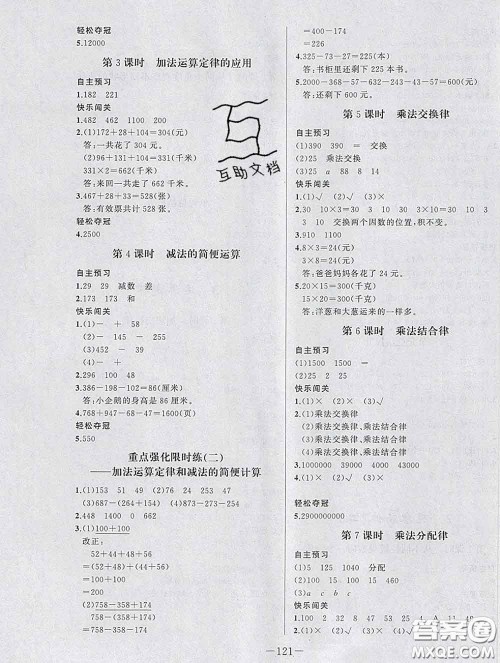 轻松夺冠
5.12000
第3课时 加法运算定律的应用
自主预习
1.182 221
快乐闯关
1.482 462 1100 200
2.(1)172+28+104=304(元)
答:一共花了304元。
(2)96+131+104=331(千米)
331×2=662(千米)
答:来回一共走了662千米。
3.
答:有效票共计528张。
轻松夺冠
4.2500
第4课时 减法的简便运算
自主预习
1.29 29 减数 差
2.173 173 和
快乐闯关
1.(1)- + 58
(2)452 - 39
(3)- - 64
2.296 100 48
3.386-198-102=86(厘米)
答:小企鹅的身高是86厘米。
4.768+947-68-47=1600(页)
轻松夺冠
5.550
重点强化限时练(二)
——加法运算定律和减法的简便计算
1.(1)153 47 (2)76 24 253 47
(3)687-(264+155) (4)873-273-254
2.448 1400 0 662
3.(1)100+100
改正:
52+44+48+56
=(52+48)+(44+56)
=100+100
=200
(2)758-358+174
758-(358+174)
=758-358-174
=400-174
=226
4.325-73-27=225(本)
答:书柜里还剩下225本书。
5.
答:还剩下600元。
第5课时 乘法交换律
自主预习
(1)390 390 = 交换
(2)25 乘法交换
(3)25 a 88 8 14
快乐闯关
1.(1)× (2)√ (3)√ (4)×
2.30 10×3=30 3 10 3×10=30 10 3
3 10 交换两个因数的位置,积不变。
3.910 1110
4.8×3=24(元)
3×8=24(元)
答:爸爸妈妈各花了24元。
5.20×15=300(千克)
15×20=300(千克)
答:洋葱和大葱运来的一样多。
第6课时 乘法结合律
自主预习
(1)1500 1500 =
(2)25 2 25
快乐闯关
1.(1)× (2)× (3)√
2.(1)乘法交换律
(2)乘法交换律,乘法结合律
(3)乘法交换律,乘法结合律
4.(1)√ (2)√ (3)× (4)×
轻松夺冠
5.2900000000
第7课时 乘法分配律
自主预习
(1)5 125 1040 分配
(2)√
(3)a c b c
快乐闯关
—121—
互助文档
答案圈
MXQE.COM